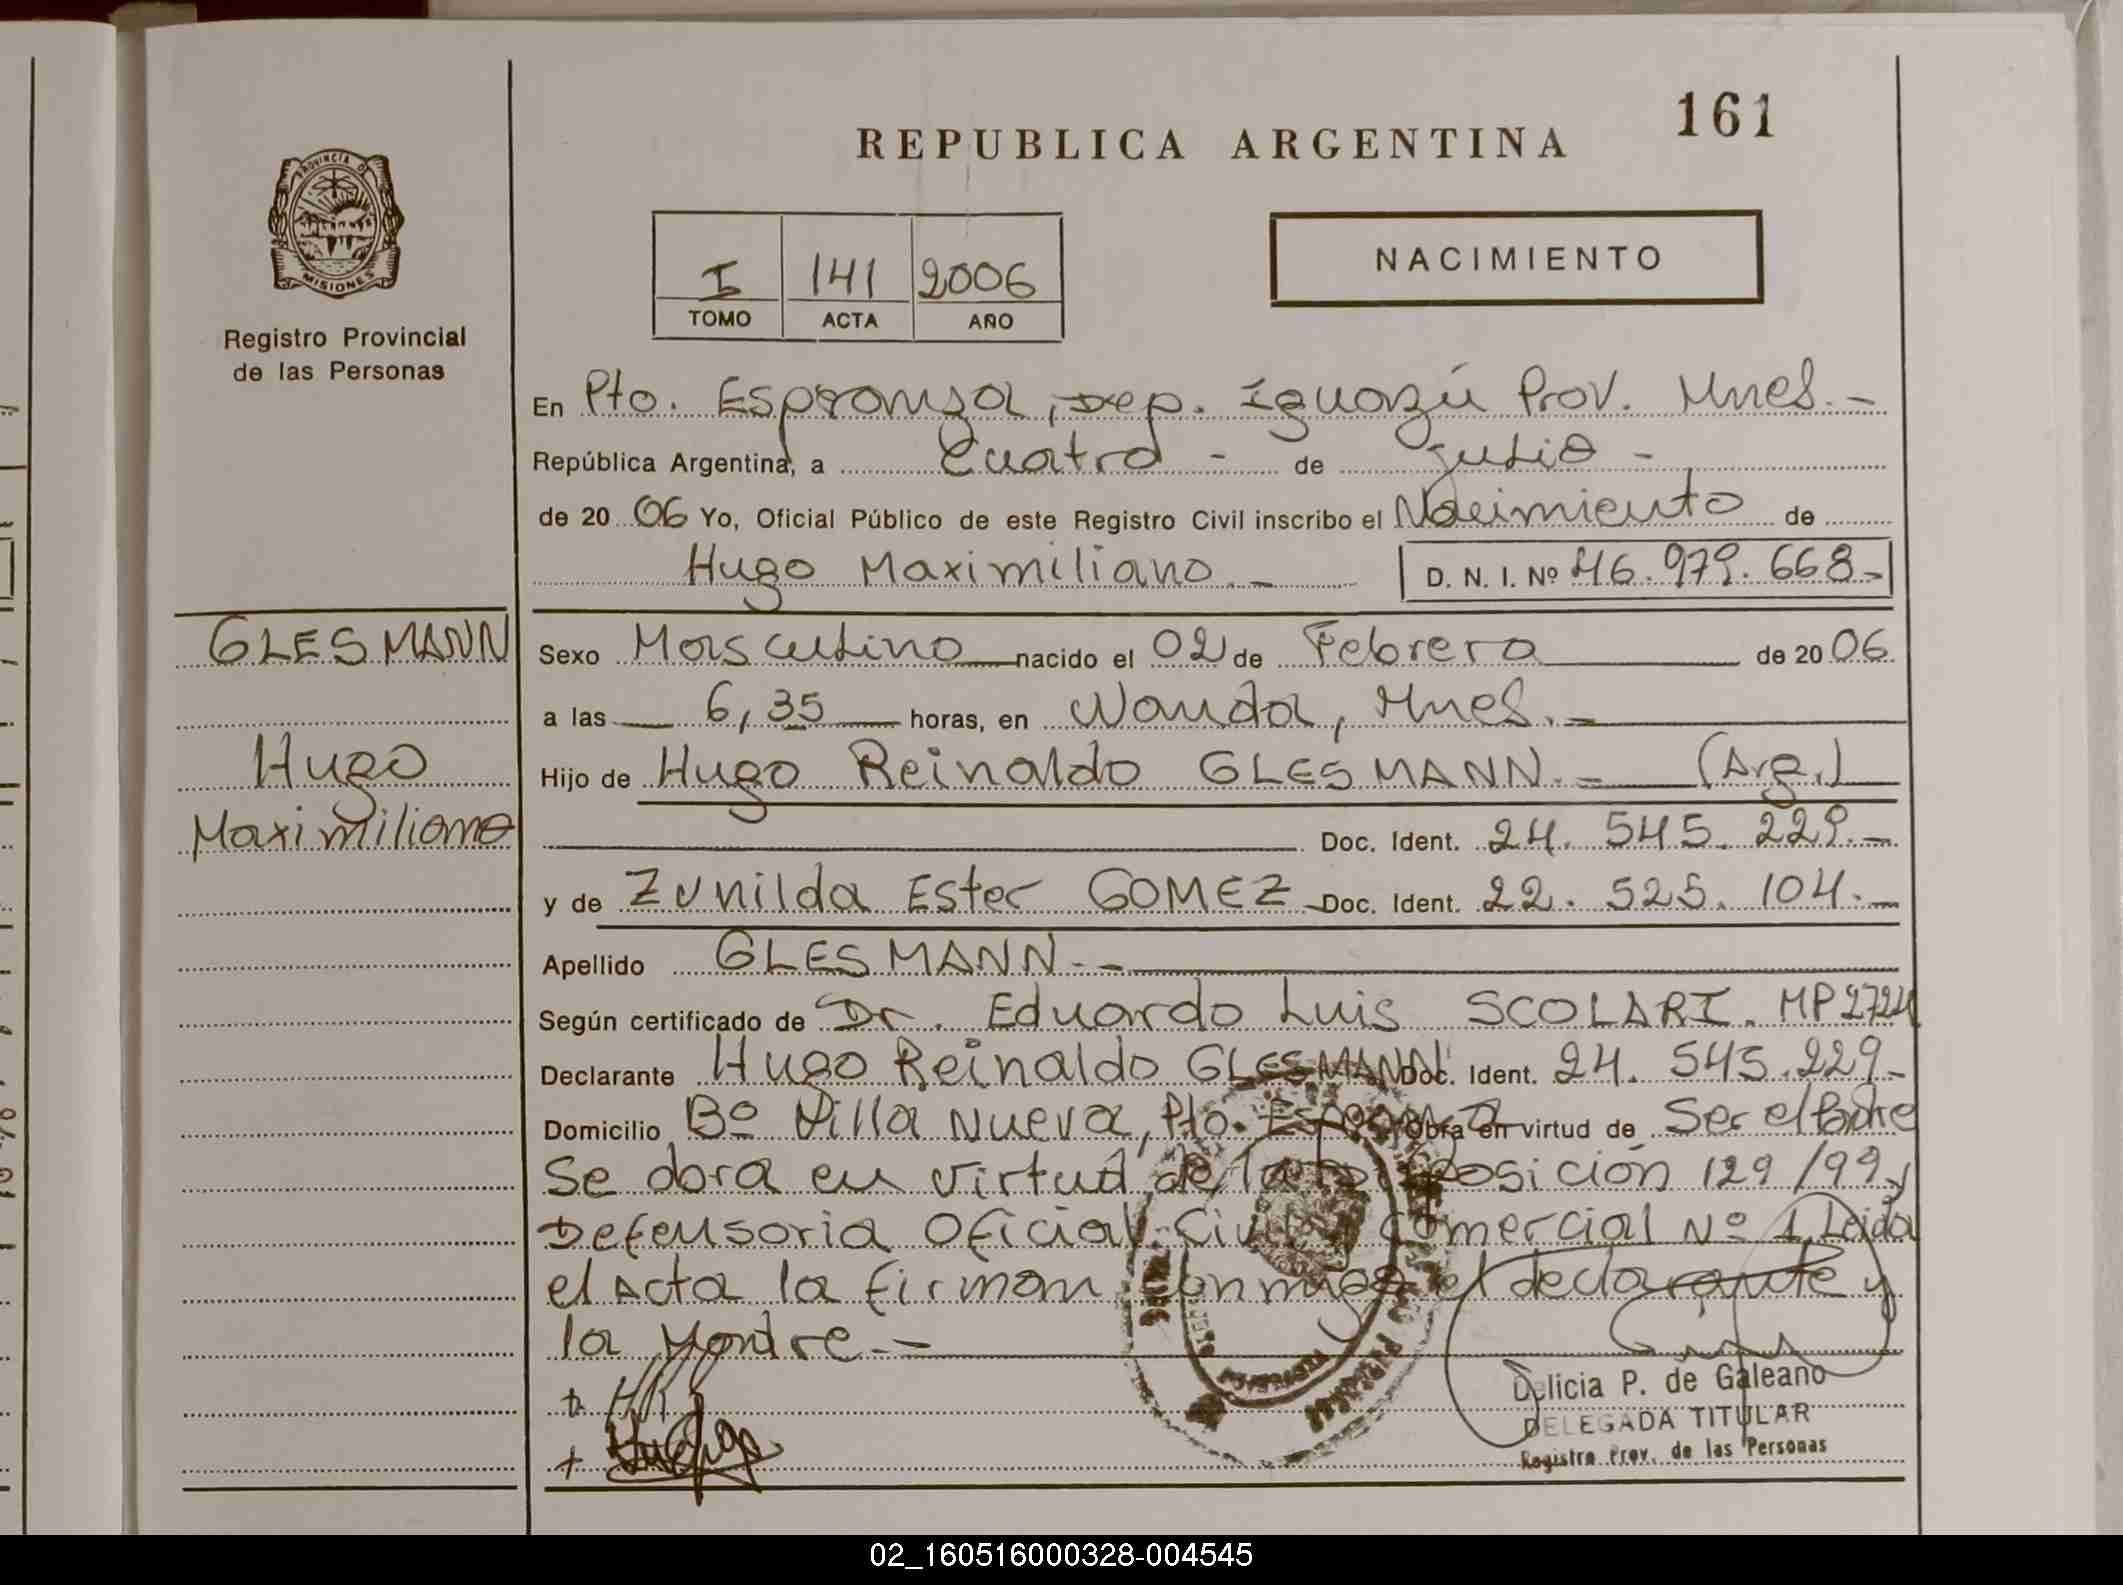 161
REPUBLICA ARGENTINA
PROVINCIA D
MISIONES
Registro Provincial
de las Personas
I 141 2006
TOMO ACTA AÑO
NACIMIENTO
En Pto. Esperanza, Dep. Iguazú Prov. Mnes. -
República Argentina, a Cuatro - de Julio -
de 20 06 Yo, Oficial Público de este Registro Civil inscribo el Nacimiento de
Hugo Maximiliano. - D. N. I. Nº 46.979.668-
GLESMANN
Hugo
Maximiliano
Sexo Masculino nacido el 02 de Febrero de 20 06
a las 6,35 horas, en Wanda, Mnes. -
Hijo de Hugo Reinaldo GLESMANN. - (Arg.)
Doc. Ident. 24.545.229.-
y de Zunilda Ester GOMEZ Doc. Ident. 22.525.104.-
Apellido GLESMANN. -
Según certificado de Dr. Eduardo Luis SCOLARI. MP2724
Declarante Hugo Reinaldo GLESMANN Doc. Ident. 24.545.229-
Domicilio Bº Villa Nueva, Pto. Esperanza Obra en virtud de Ser el Padre
Se obra en virtud de la Disposición 129/99,
Defensoria Oficial Civil y Comercial Nº 1 Leida
el Acta la firman conmigo el declarante y
la Madre. -
Delicia P. de Galeano
DELEGADA TITULAR
Registro Prov. de las Personas
02_160516000328-004545